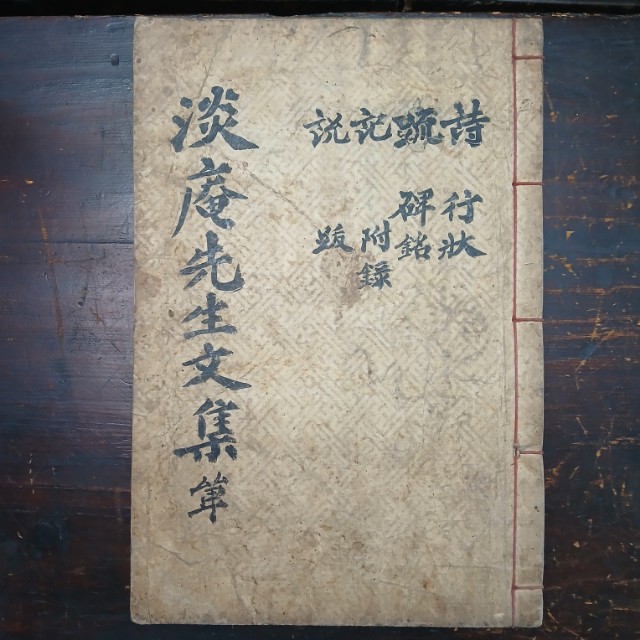 詩 行狀
疏 碑銘
記 附錄
說 跋
淡庵先生文集